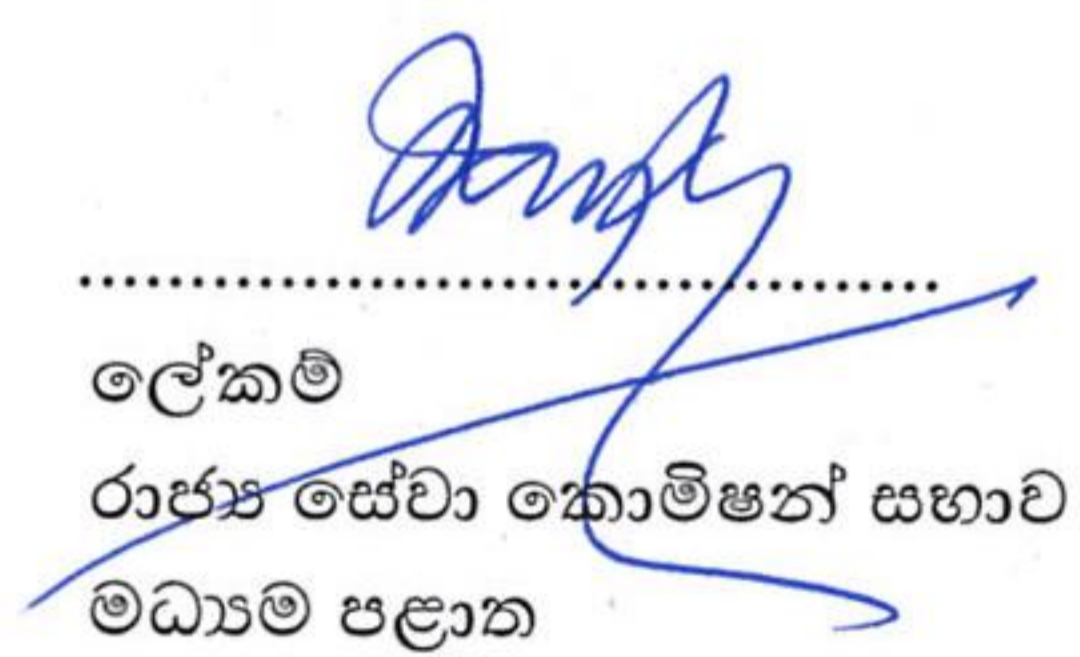 ........................................
ලේකම්
රාජ්‍ය සේවා කොමිෂන් සභාව
මධ්‍යම පළාත